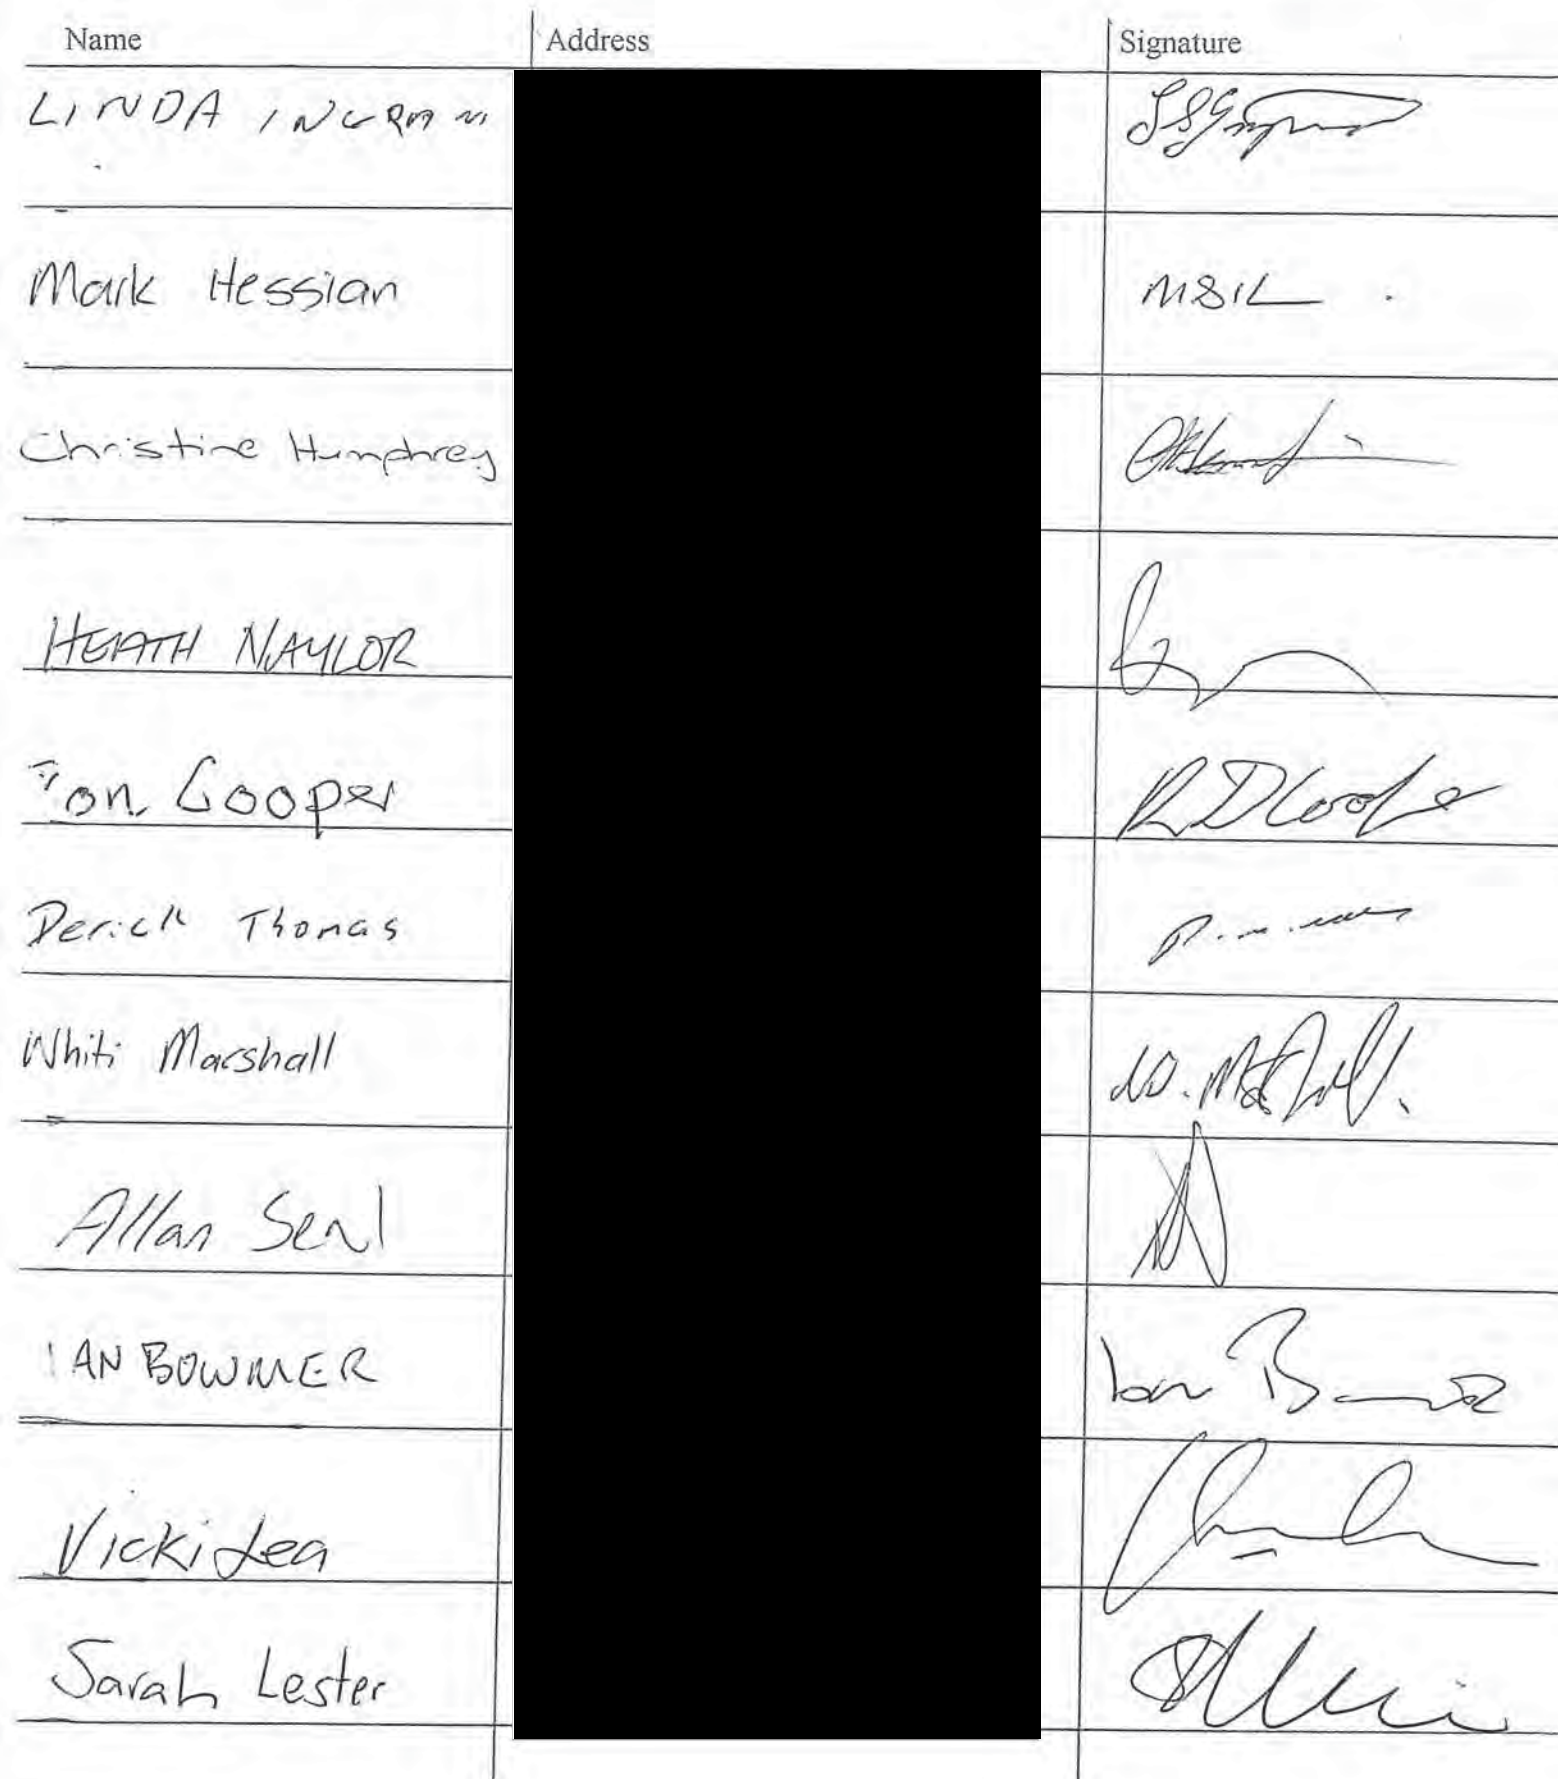 Name Address Signature
LINDA INGRAM
Mark Hessian MSIL
Christine Humphrey
HEATH NAYLOR
on Cooper RDCooper
Derick Thomas
Whiti Marshall W. Marshall
Allan Seal
IAN BOWMER Ian
Vicki Lea
Sarah Lester